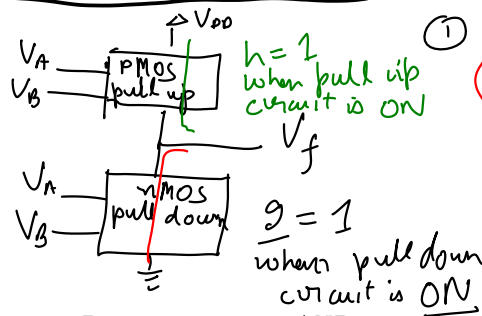 V_DD
①
V_A
V_B
PMOS
pull up
h = 1
when pull up
circuit is ON
V_f
V_A
V_B
nMOS
pull down
g = 1
when pull down
circuit is ON